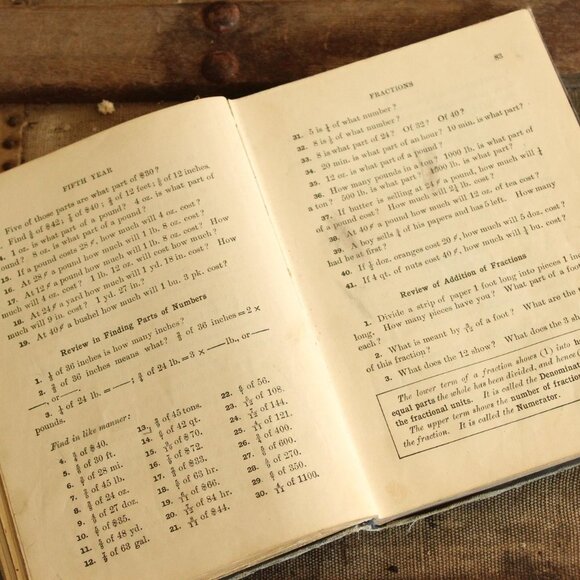 FIFTH YEAR
Five of those parts are what part of $30?
Find of $42; of $40; of 12 feet; of 12 inches.
oz. is what part of a pound? 4 oz. is what part of
ound? 8 oz. is what part of a pound?
15. If a pound costs 28¢, how much will 4 oz. cost?
16. At 28¢ a pound how much will 1 lb. 8 oz. cost? How
much will 4 oz. cost? 1 lb. 12 oz. will cost how much?
18. At 24¢ a yard how much will 1 yd. 18 in. cost? How
much will 9 in. cost? 1 yd. 27 in.?
19. At 40¢ a bushel how much will 1 bu. 3 pk. cost?
Review in Finding Parts of Numbers
1. of 36 inches is how many inches?
2. of 36 inches means what? of 36 inches = 2 ×
—, or —.
3. of 24 lb. = —; of 24 lb. = 3 × — lb., or —
pounds.
Find in like manner:
4. of $40.
5. of 30 ft.
6. of 28 mi.
7. of 45 lb.
8. of 24 oz.
9. of 27 doz.
10. of $35.
11. of 48 yd.
12. of 63 gal.
13. of 45 tons.
14. of 42 qt.
15. of $70.
16. of $72.
17. of $33.
18. of 63 hr.
19. of $66.
20. of 84 hr.
21. of $44.
22. of 56.
23. of 108.
24. of 144.
25. of 121.
26. of 400.
27. of 600.
28. of 270.
29. of 350.
30. of 1100.
FRACTIONS
83
31. 5 is of what number?
32. 8 is of what number?
33. 8 is what part of 24? Of 32? Of 40?
34. 20 min. is what part of an hour? 10 min. is what part?
35. 12 oz. is what part of a pound?
36. How many pounds in a ton? 1000 lb. is what part of
a ton? 500 lb. is what part? 1500 lb. is what part?
37. If butter is selling at 24¢ a pound, how much will
of a pound cost? How much will 2 lb. cost?
38. At 40¢ a pound how much will 12 oz. of tea cost?
39. A boy sells of his papers and has 5 left. How many
had he at first?
40. If doz. oranges cost 20¢, how much will 5 doz. cost?
41. If 4 qt. of nuts cost 40¢, how much will bu. cost?
Review of Addition of Fractions
1. Divide a strip of paper 1 foot long into pieces 1 in
long. How many pieces have you? What part of a foo
each?
2. What is meant by of a foot? What are the t
of this fraction?
3. What does the 12 show? What does the 3 sho
The lower term of a fraction shows (1) into h
equal parts the whole has been divided, and hence
the fractional units. It is called the Denominat
The upper term shows the number of fraction
the fraction. It is called the Numerator.